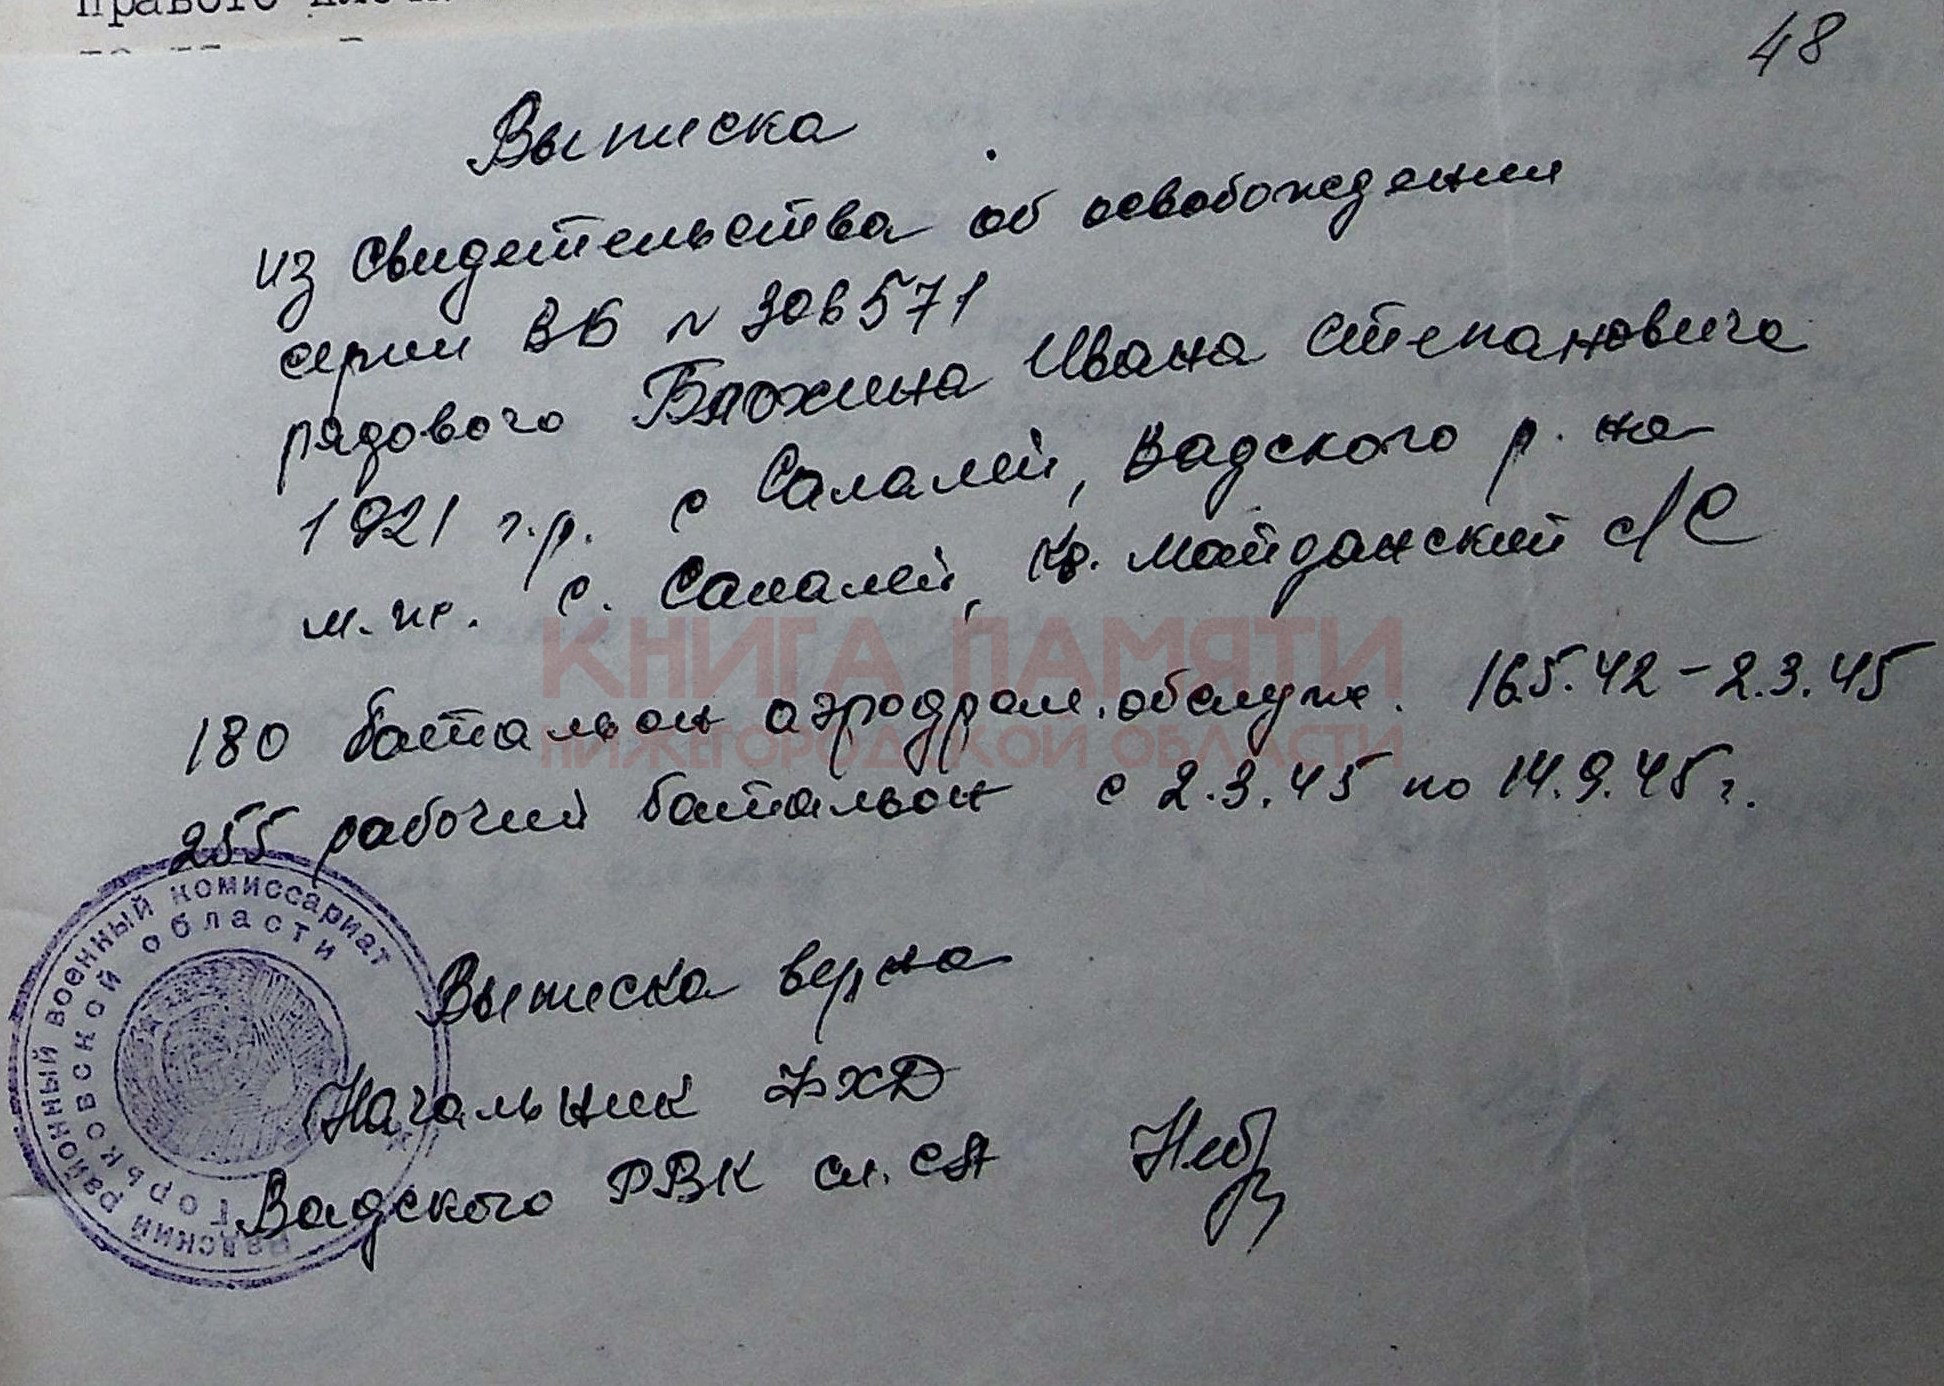 правого
48
Выписка
из свидетельства об освобождении
серии ВБ № 306571
рядового Блохина Ивана Степановича
1921 г.р. с Салалей, Вадского р. на
м.ж. с. Салалей, Кр. Майданский с/С
КНИГА ПАМЯТИ
НИЖЕГОРОДСКОЙ ОБЛАСТИ
180 батальон аэродром. обслуж. 16.5.42 - 2.3.45
255 рабочий батальон с 2.3.45 по 14.9.45 г.
Выписка верна
Начальник
Вадского РВК
Вадский районный военный комиссариат
Горьковской области